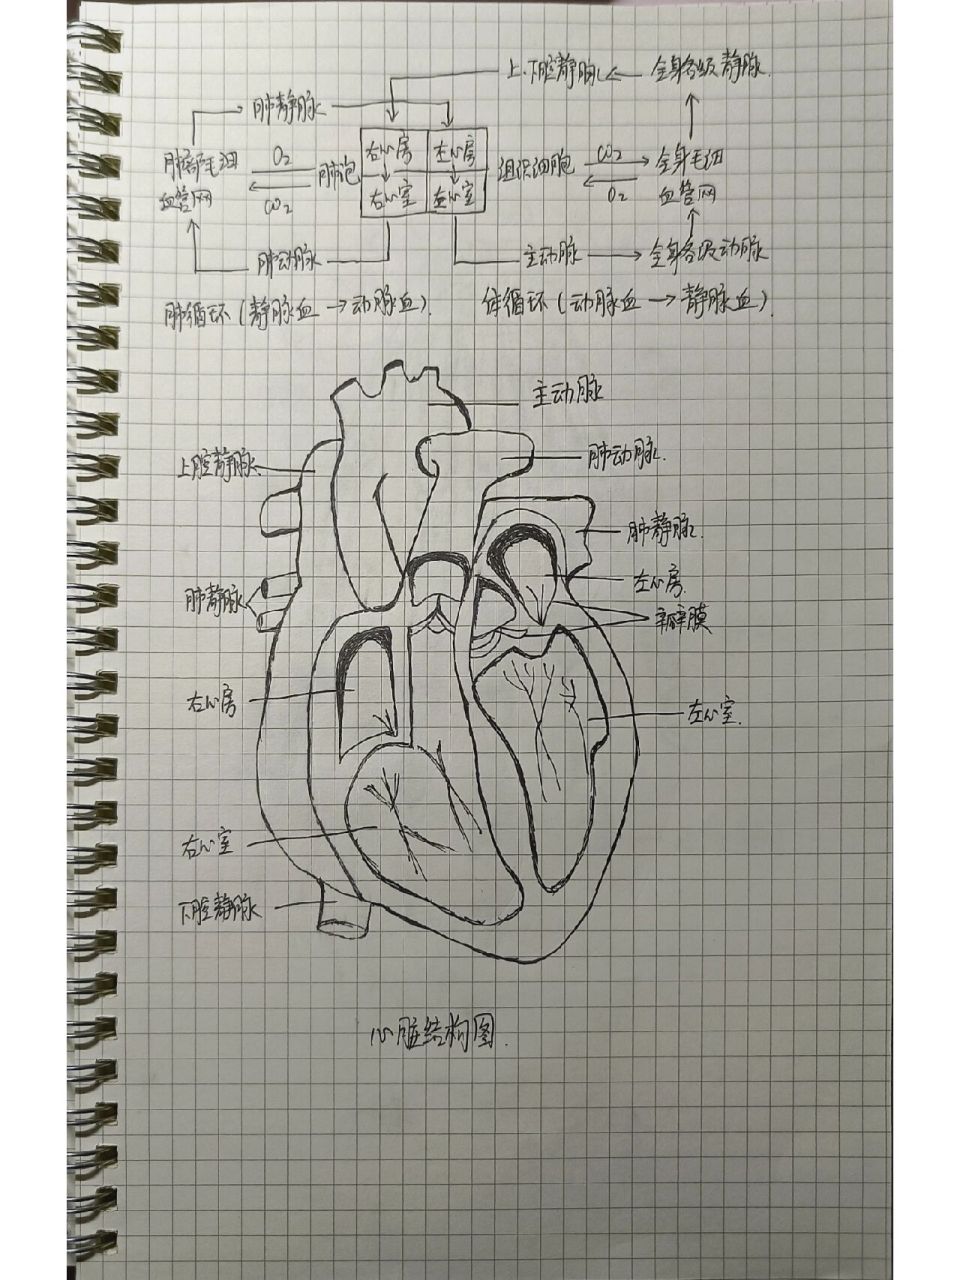 上、下腔静脉 ← 全身各级静脉
肺静脉
肺部毛细 O2 肺泡 右心房 左心房 组织细胞 CO2 全身毛细
血管网 CO2 右心室 左心室 O2 血管网
肺动脉 主动脉 → 全身各级动脉
肺循环(静脉血→动脉血). 体循环(动脉血→静脉血).
主动脉
上腔静脉 肺动脉.
肺静脉.
左心房.
肺静脉 瓣膜
右心房 左心室.
右心室
下腔静脉
心脏结构图.